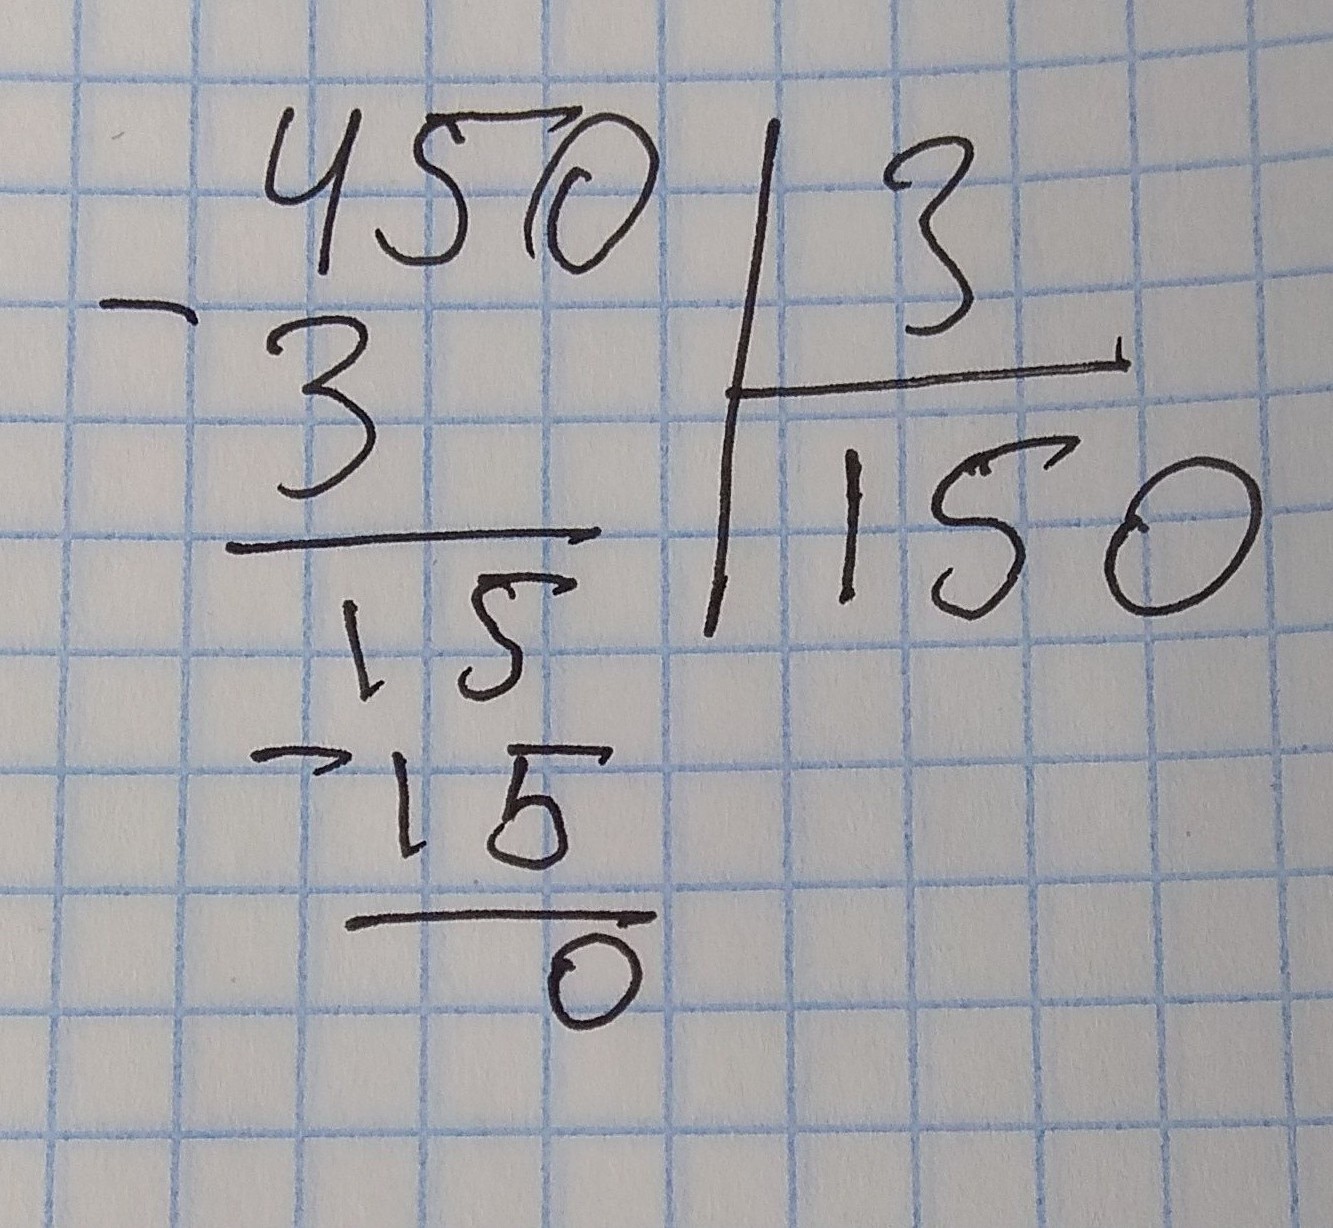 450 | 3
- 3
150
15
- 15
0